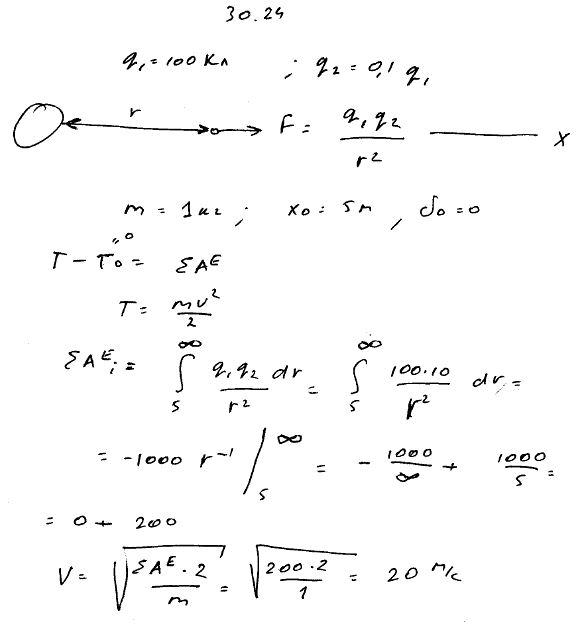 30.24
q₁ = 100 Кл ; q₂ = 0,1 q₁
r F = q₁q₂/r² x
m = 1кг ; x₀ = 5м , v₀ = 0
T - T₀ = ΣAᴱ
"0
T = mv²/2
ΣAᴱᵢ = ∫₅^∞ q₁q₂ dr/r² = ∫₅^∞ 100·10/r² dr =
= -1000 r⁻¹ |₅^∞ = - 1000/∞ + 1000/5 =
= 0 + 200
V = √(ΣAᴱ·2/m) = √(200·2/1) = 20 м/с